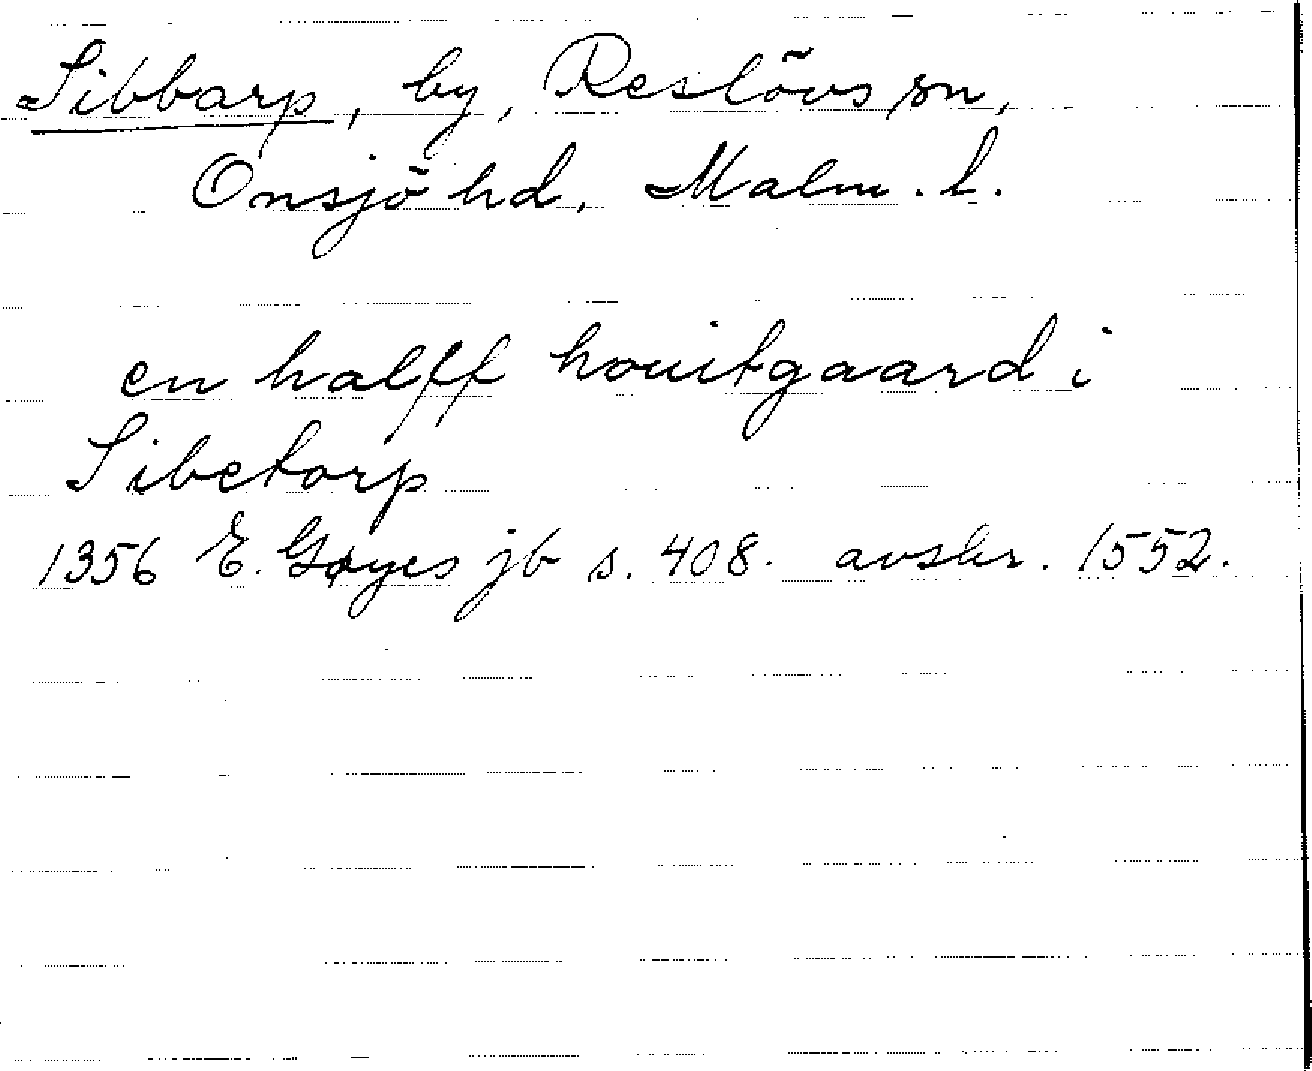 Sibbarp, by, Reslövs sn,
Onsjö hd, Malm. l.
en halff houitgaard i
Sibetorp
1356 E. Gøyes jb s. 408. avskr. 1552.